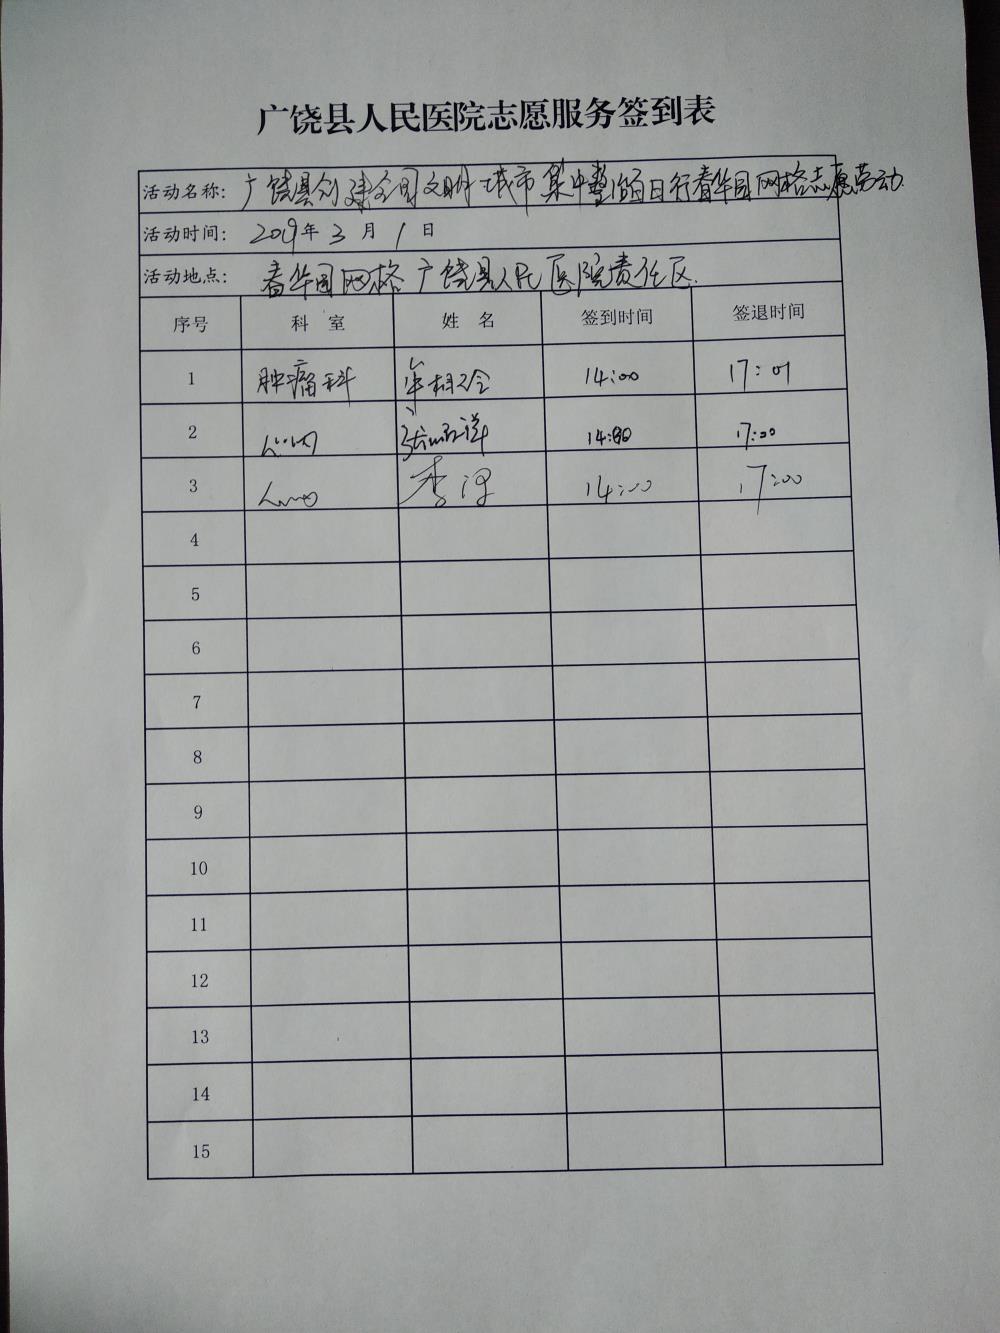 广饶县人民医院志愿服务签到表
活动名称: 广饶县创建全国文明城市集中整治百日行春华园网格志愿劳动
活动时间: 2019年3月1日
活动地点: 春华园网格广饶县人民医院责任区.
序号 科 室 姓 名 签到时间 签退时间
1 肿瘤科 14:00 17:01
2 心内 14:00 17:00
3 心内 李 14:00 17:00
4
5
6
7
8
9
10
11
12
13
14
15